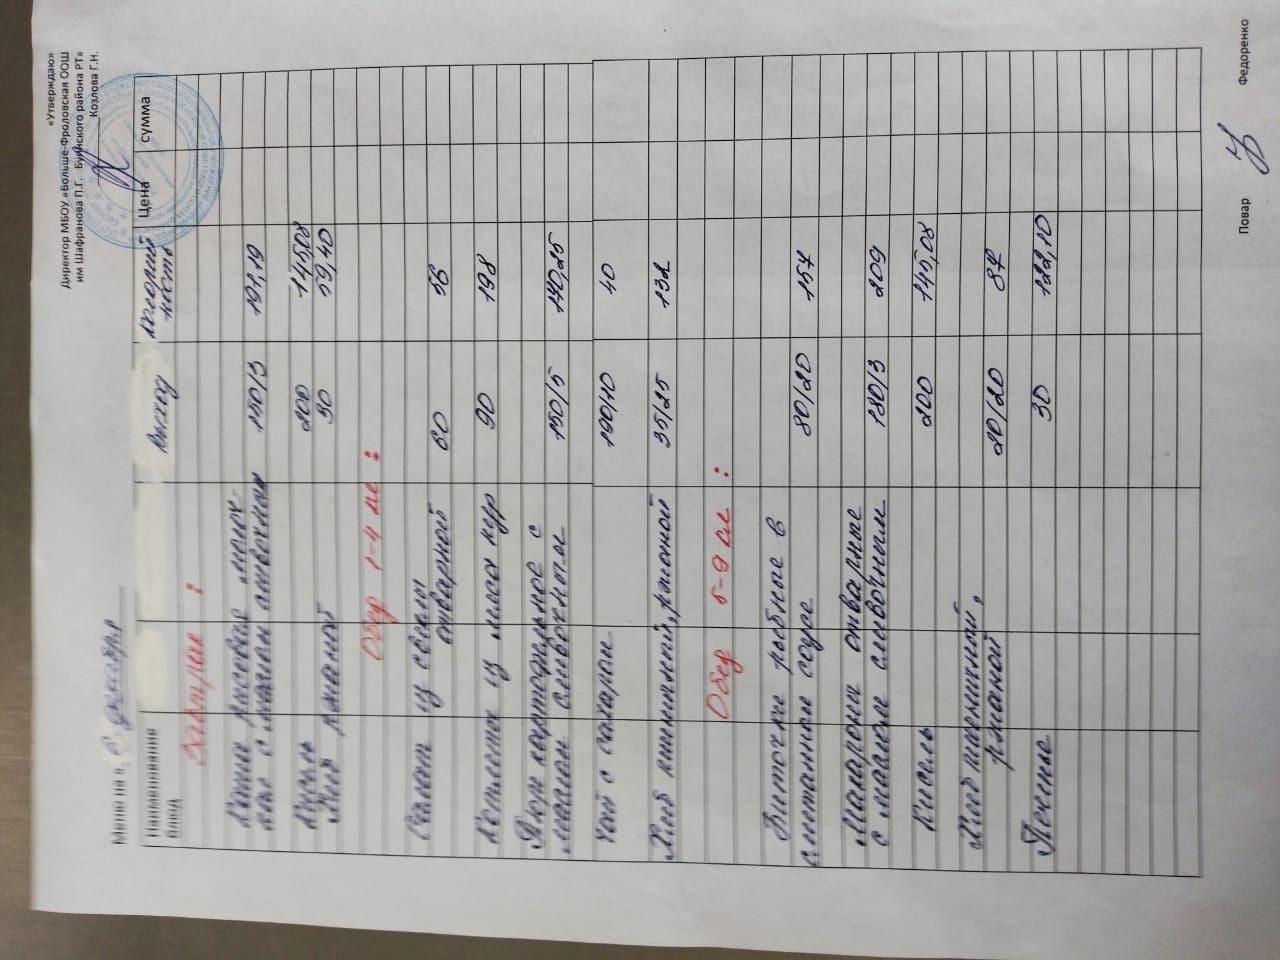 «Утверждаю»
Директор МБОУ «Больше-Фроловская ООШ
им Шафранова П.Г. Буинского района РТ»
Козлова Г.Н.
Меню на « декабря
Наименование блюд Выход Калорийность Цена сумма
Завтрак :
Каша рисовая молоч-
ная с маслом сливочным 150/3 191,19
Кисель 200 145,08
Хлеб ржаной 30 59,40
Обед 1-4 кл :
Салат из свеклы
отварной 60 56
Котлеты из мяса кур 90 198
Пюре картофельное с
маслом сливочным 150/5 140,25
Чай с сахаром 190/10 40
Хлеб пшеничный, ржаной 35/25 132
Обед 5-9 кл :
Биточки рыбные в
сметанном соусе 80/20 157
Макароны отварные
с маслом сливочным 180/3 209
Кисель 200 145,08
Хлеб пшеничный,
ржаной 20/20 87
Печенье 30 122,10
Повар Федоренко